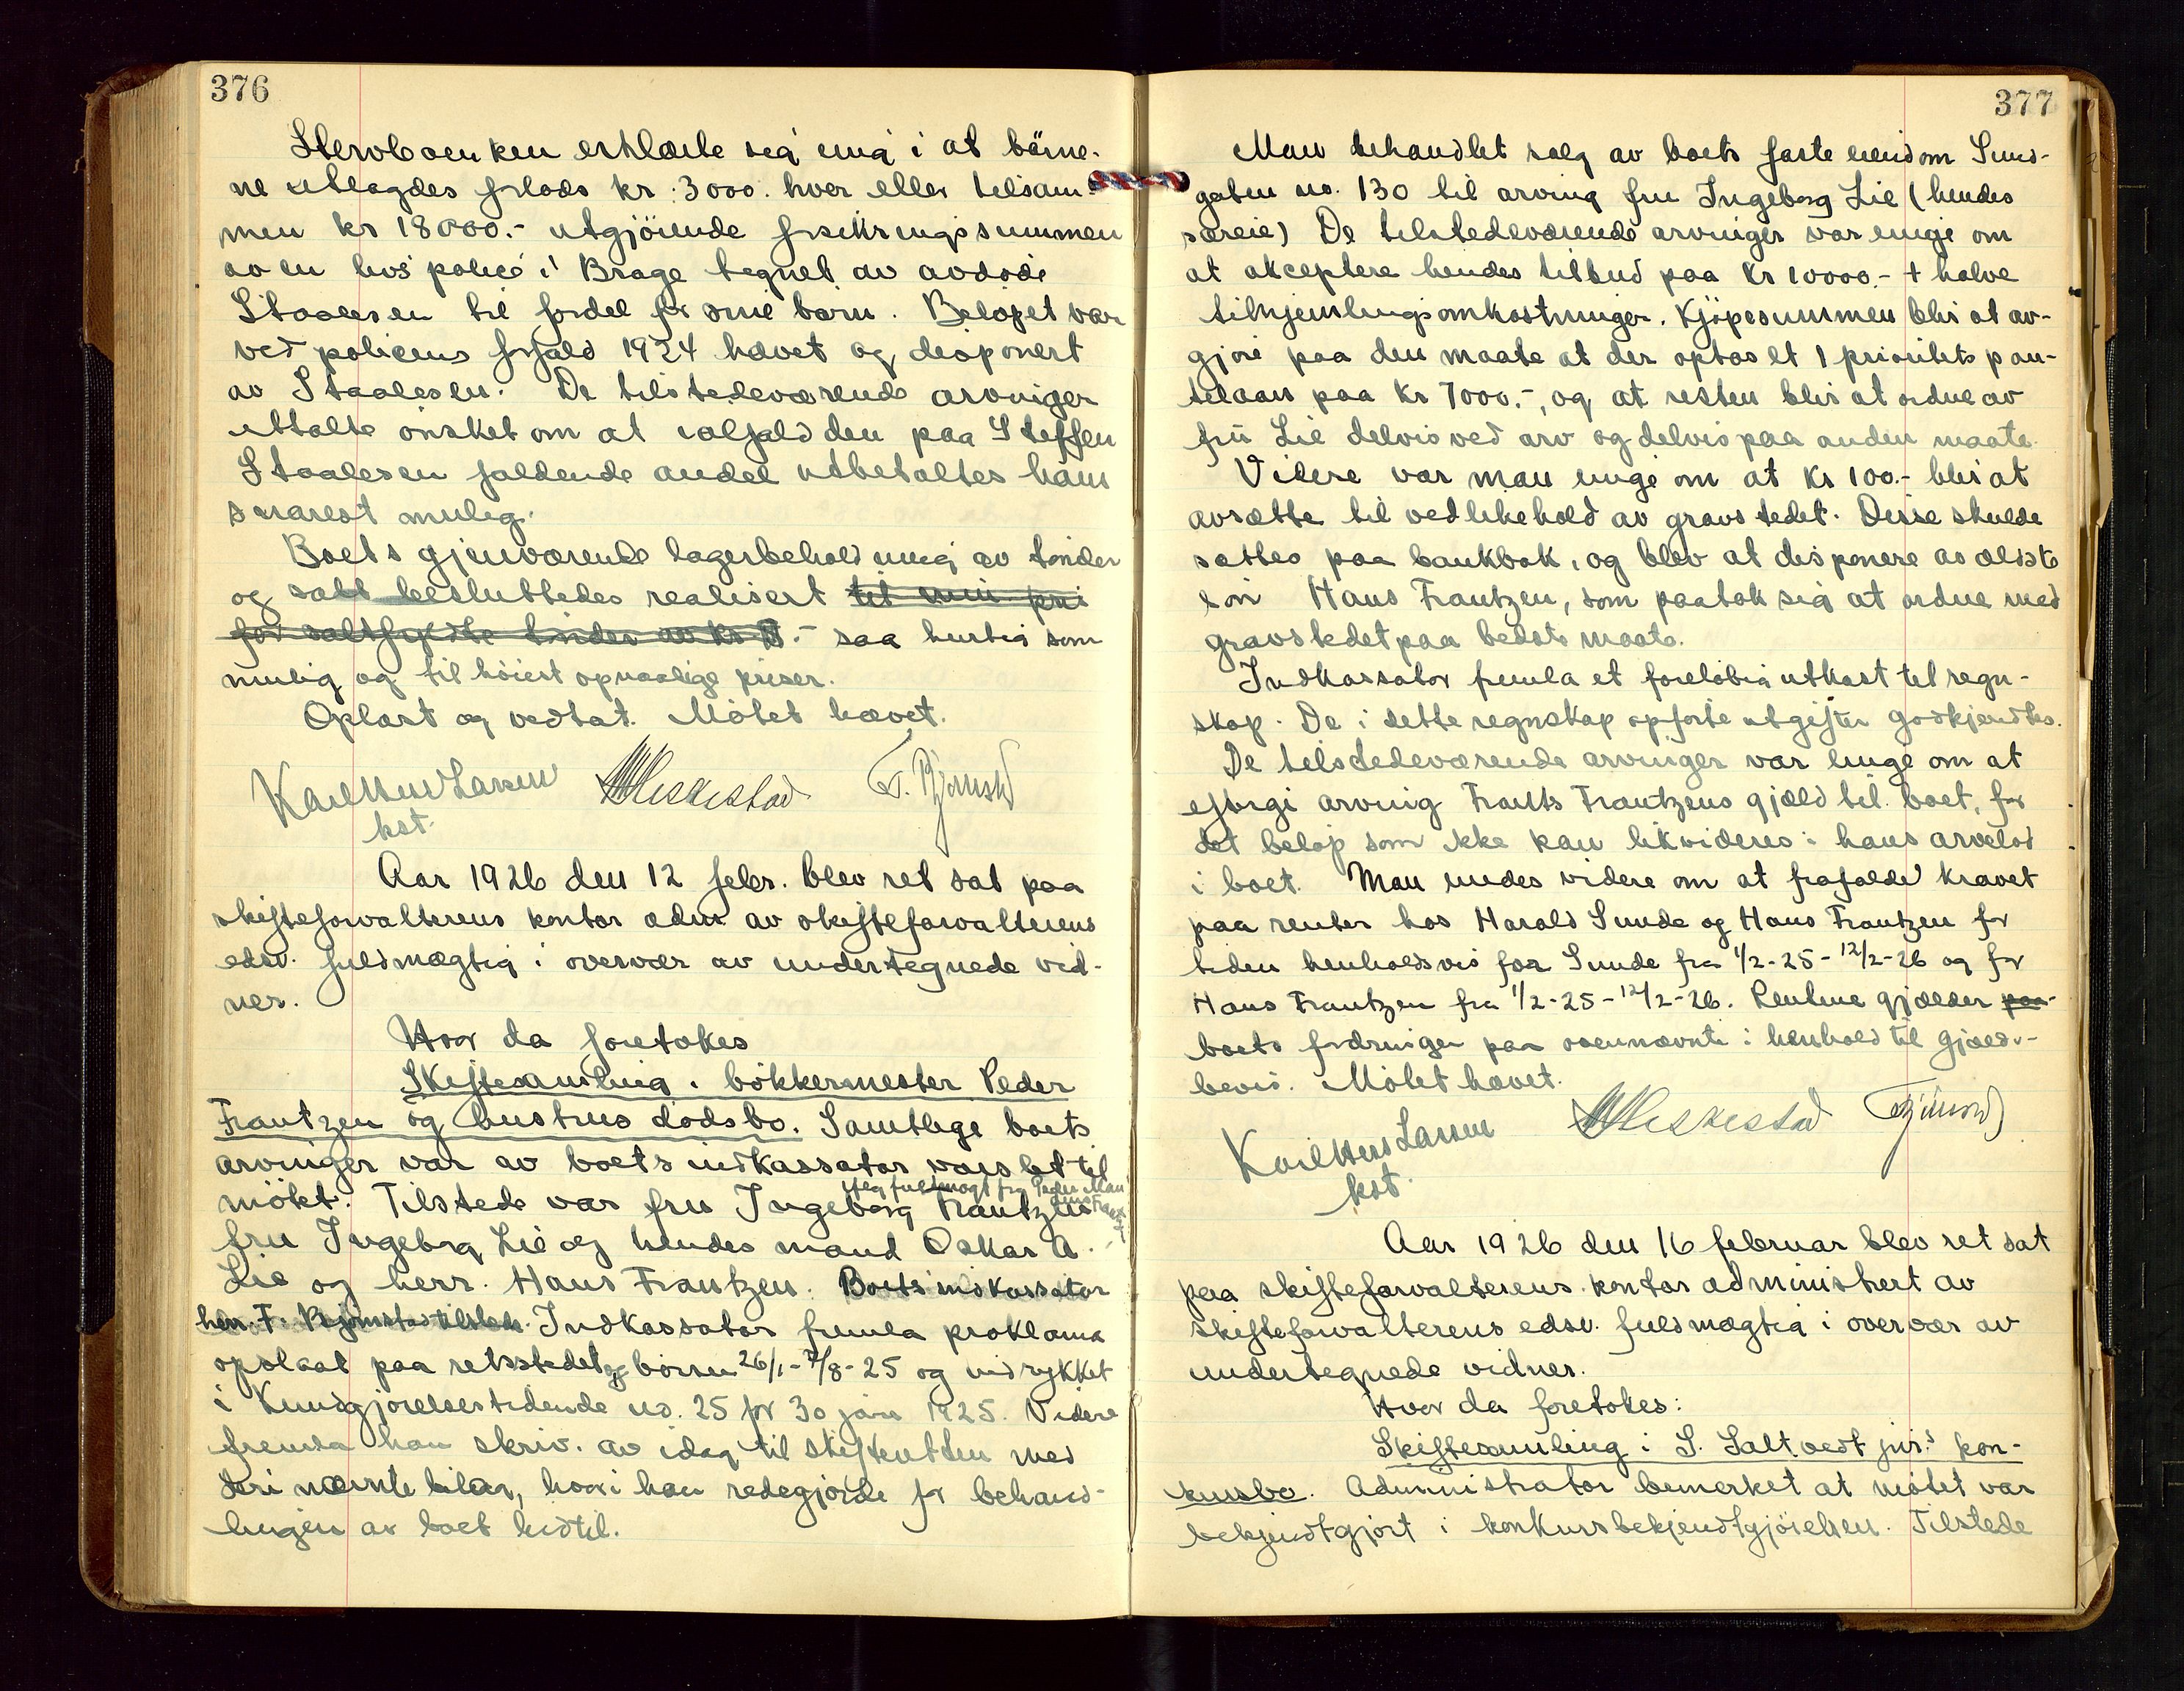 376
Stervboenken erklærte seg enig i at barne-
ne utlagdes forlods kr. 3000. hver eller tilsam-
men kr 18000.- utgjörende forsikringssummen
av en livspolice i Brage tegnet av avdöde
Staalesen til fordel for sine barn. Belöpet var
ved policens forfald 1924 hævet og disponert
av Staalesen. De tilstedeværende arvinger
uttalte önsket om at ialfald den paa Steffen
Staalesen faldende andel utbetaltes ham
snarest mulig.
Boets gjenværende lagerbeholdning av tönder
og salt besluttedes realisert til min. pri
for saltfyldte tönder av kr .- saa hurtig som
mulig og til höiest opnaalige priser.
Oplæst og vedtat. Mötet hævet.
Karl Larsen
kst.
Heskestad F. Björnstad
Aar 1926 den 12 febr. blev ret sat paa
skifteforvalterens kontor adm av skifteforvalterens
edsv. fuldmægtig i overvær av undertegnede vid-
ner.
Hvor da foretokes
Skiftesamling i bökkermester Peder
Frantzen og hustrus dödsbo. Samtlige boets
arvinger var av boets indkassator varslet til
mötet. Tilstede var fru Ingeborg Frantzen
ifölg fuldmagt fra Peder
fru Ingeborg Lie og hendes mand Oskar A.
Lie og herr. Hans Frantzen. Boets indkassator
herr. F. Björnstad tilstede. Indkassator fremla proklama
opslaat paa retsstedet og börsen 26/1-7/8-25 og indrykket
i Kundgjörelsestidende no. 25 for 30 jan 1925. Videre
fremla han skriv. av idag til skifteretten med
deri nævnte bilag, hvori han redegjorde for behand-
lingen av boet hidtil.
377
Man behandlet salg av boets faste eiendom Sund-
gaten no. 130 til arving fru Ingeborg Lie (hendes
særeie) De tilstedeværende arvinger var enige om
at akceptere hendes tilbud paa kr 10000.- + halve
tilhjemlingsomkostninger. Kjöpesummen blir at av-
gjöre paa den maate at der optas et 1 prioritets pan-
telaan paa kr 7000.-, og at resten blir at ordne av
fru Lie delvis ved arv og delvis paa anden maate.
Videre var man enige om at kr 100.- blir at
avsætte til vedlikehold av gravstedet. Disse skulde
sættes paa bankbok, og blev at disponere av ældste
sön Hans Frantzen, som paatok sig at ordne med
gravstedet paa bedste maate.
Indkassator fremla et foreløbig utkast til regn-
skap. De i dette regnskap opförte utgifter godkjendtes.
De tilstedeværende arvinger var enige om at
eftergi arving Frantz Frantzens gjæld til boet, for
det belöp som ikke kan likvideres i hans arvelod
i boet. Man enedes videre om at frafalde kravet
paa renter hos Harald Sunde og Hans Frantzen for
tiden henholdsvis foa Sunde fra 1/2-25-12/2-26 og for
Hans Frantzen fra 1/2-25-12/2-26. Rentene gjælder paa
boets fordringer paa ovennævnte i henhold til gjælds-
bevis. Mötet hævet.
Karl Larsen
kst.
Heskestad Björnstad
Aar 1926 den 16 februar blev ret sat
paa skifteforvalterens kontor administrert av
skifteforvalterens edsv. fuldmægtig i overvær av
undertegnede vidner.
Hvor da foretokes:
Skiftesamling i S. Saltvedt jnr's kon-
kursbo. Administrator bemerket at mötet var
bekjendtgjort i konkursbekjendtgjörelsen. Tilstede